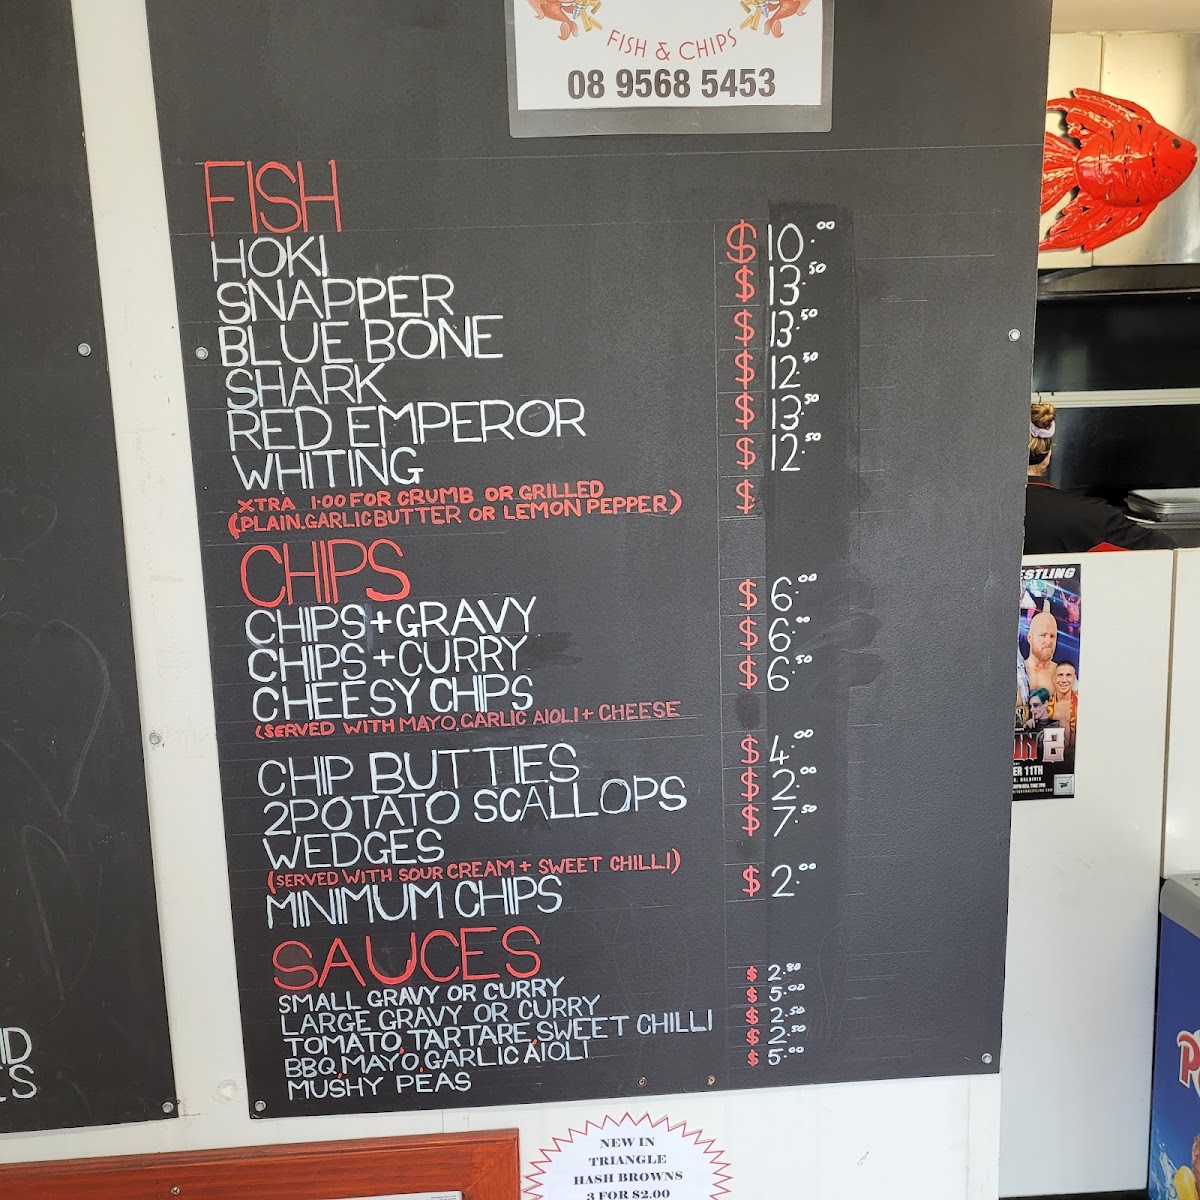 FISH & CHIPS
08 9568 5453
FISH
HOKI $10.00
SNAPPER $13.50
BLUE BONE $13.50
SHARK $12.50
RED EMPEROR $13.50
WHITING $12.50
XTRA 1.00 FOR CRUMB OR GRILLED $
(PLAIN.GARLIC BUTTER OR LEMON PEPPER)
CHIPS
CHIPS + GRAVY $6.00
CHIPS + CURRY $6.00
CHEESY CHIPS $6.50
(SERVED WITH MAYO, GARLIC AIOLI + CHEESE
CHIP BUTTIES $4.00
2 POTATO SCALLOPS $2.00
WEDGES $7.50
(SERVED WITH SOUR CREAM + SWEET CHILLI)
MINIMUM CHIPS $2.00
SAUCES
SMALL GRAVY OR CURRY $2.80
LARGE GRAVY OR CURRY $5.00
TOMATO, TARTARE, SWEET CHILLI $2.50
BBQ, MAYO, GARLIC AIOLI $2.50
MUSHY PEAS $5.00
NEW IN
TRIANGLE
HASH BROWNS
3 FOR $2.00
ESTLING
8
ER 11TH